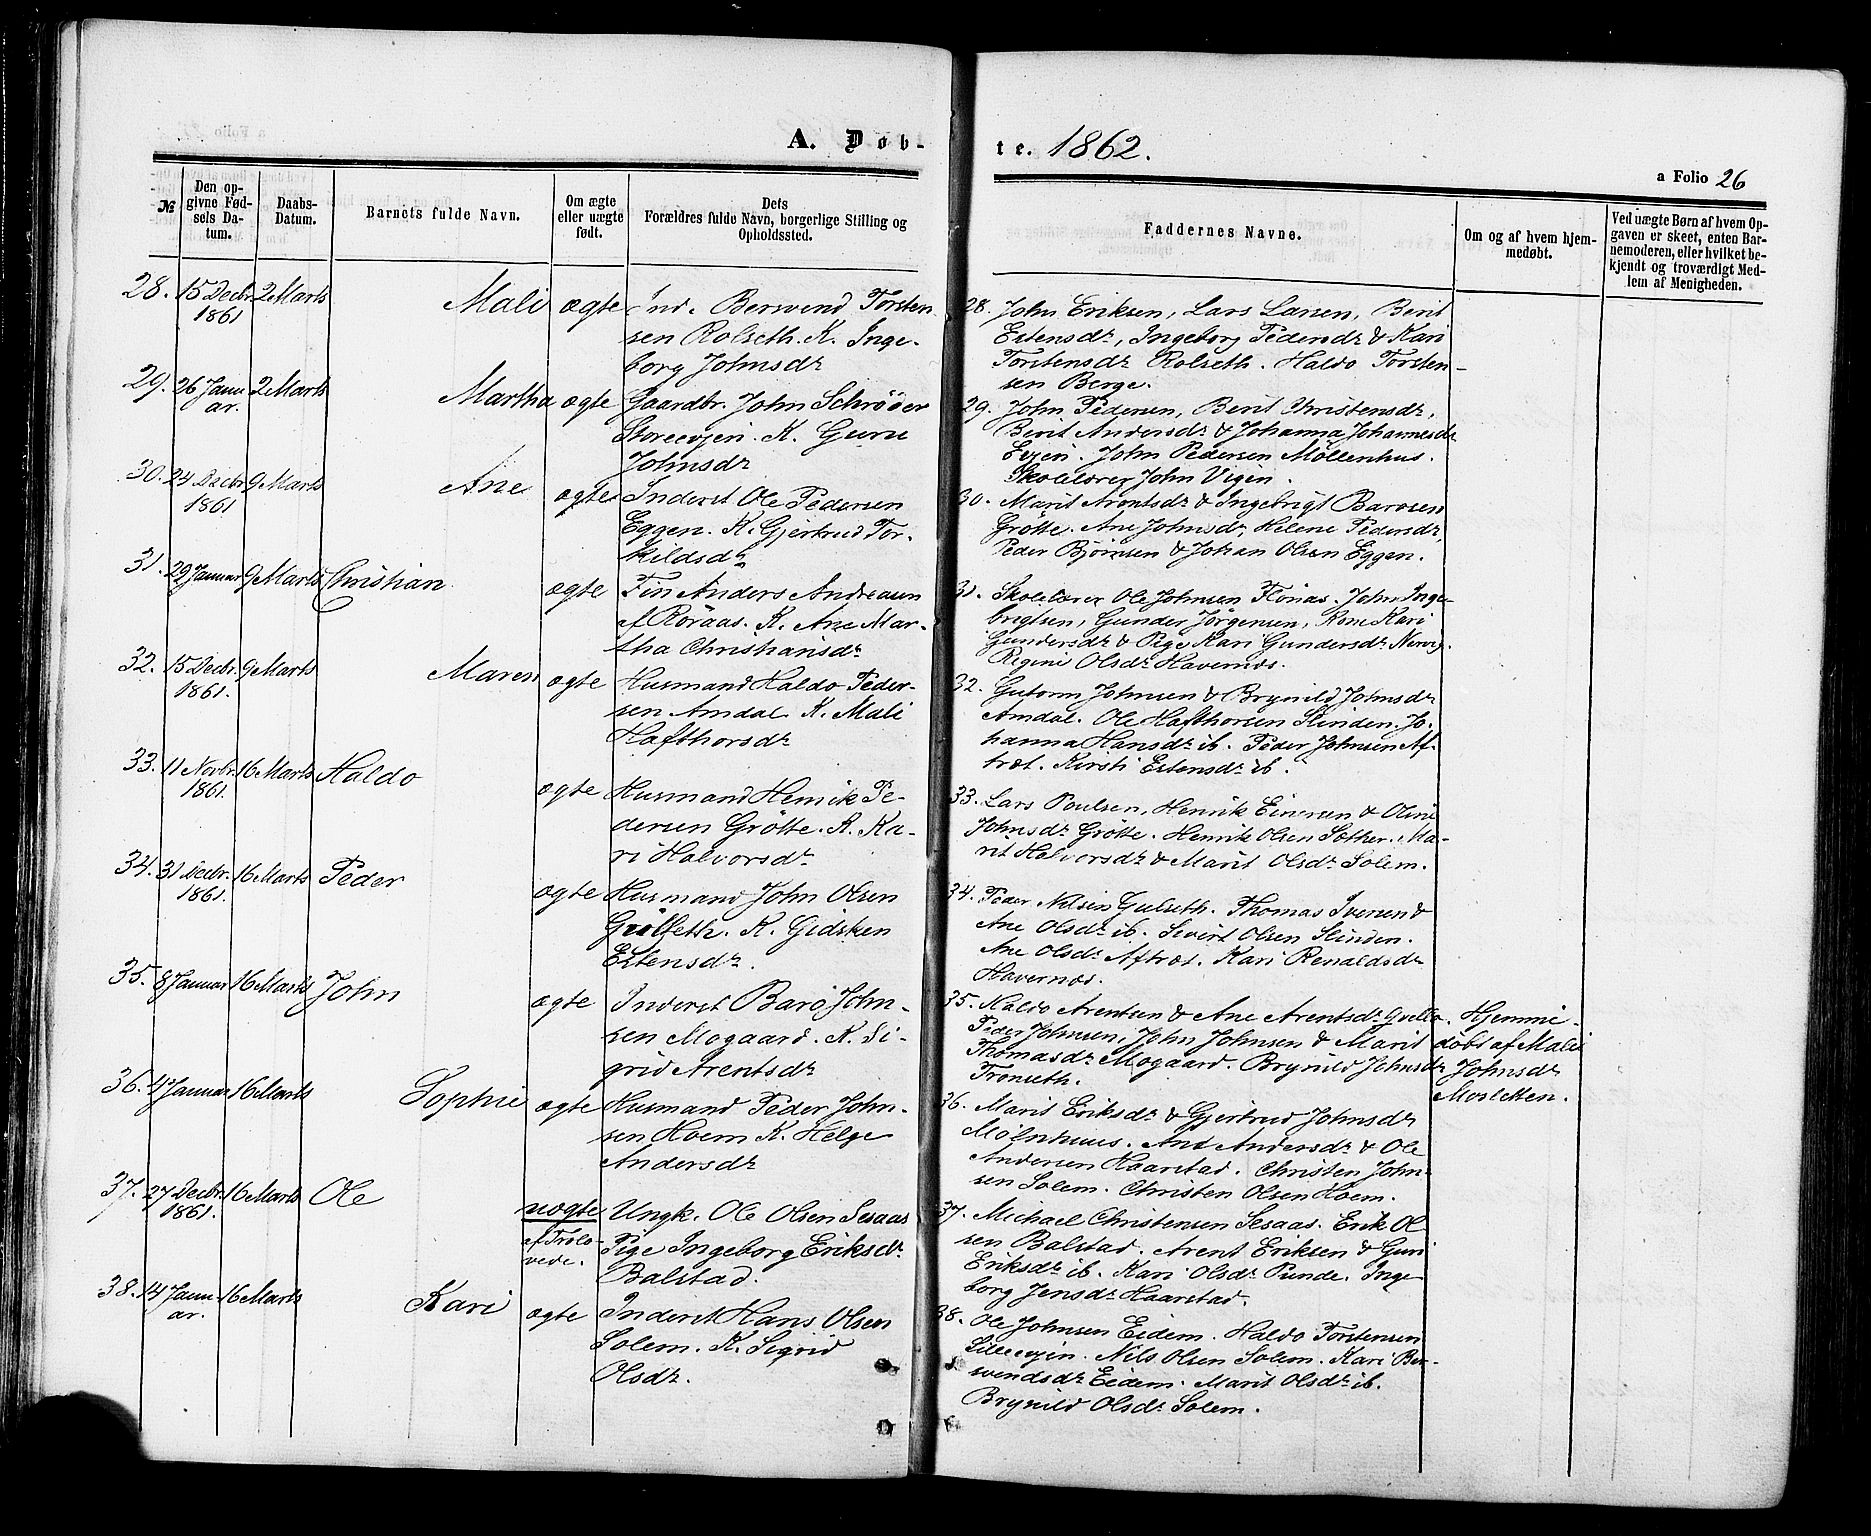 A. Døb-
te. 1862.
a Folio 26
№
Den op-
givne Fød-
sels Da-
tum.
Daabs-
Datum.
Barnets fulde Navn.
Om ægte
eller uægte
født.
Dets
Forældres fulde Navn, borgerlige Stilling og
Opholdssted.
Faddernes Navne.
Om og af hvem hjem-
medøbt.
Ved uægte Børn af hvem Op-
gaven er skeet, enten Bar-
nemoderen, eller hvilket be-
kjendt og troværdigt Med-
lem af Menigheden.
28. 15 Decbr 2 Marts Mali ægte Ind. Berwend Torsten
1861
sen Rolseth. K. Inge-
borg Johnsdr
28. John Eriksen, Lars Larsen, Berit
Estensdr, Ingeborg Pedersdr & Kari
Torstensdr Rolseth. Haldo Torsten-
sen Berge.
29. 26 Janu 2 Marts Martha ægte Gaardbr. John Schrøder
ar.
Storeevjen. K. Guru
Johnsdr
29. John Pedersen, Berit Christensdr,
Berit Andersdr & Johanna Johannesdr
Evjen. John Pedersen Möllenhus.
Skolelærer John Vigen.
30. 24 Decbr 9 Marts Ane ægte Inderst Ole Pedersen
1861
Eggen. K. Gjertrud Tor-
kildsdr
30. Marit Arentsdr & Ingebrigt Barosen
Grötte. Ane Johnsdr, Helene Pedersdr,
Peder Bjørnsen & Johan Olsen Eggen.
31. 29 Januar 9 Marts Christian ægte Fin Anders Andreasen
af Röraas. K. Ane Mar-
tha Christiansdr
31. Skolelærer Ole Johnsen Flönæs. John Inge-
brigtsen, Gunder Jörgensen, Kone Kari
Gundersdr & Pige Kari Gundersdr Nervig.
Regine Olsdr Havernæs.
32. 15 Decbr 9 Marts Maren ægte Husmand Haldo Peder-
1861.
sen Amdal K. Mali
Hafthorsdr
32. Gutorm Johnsen & Brynild Johnsdr
Amdal. Ole Hafthorsen Slinden. Jo-
hanna Hansdr ib. Peder Johnsen Af-
træt. Kirsti Estensdr ib.
33. 11 Novbr 16 Marts Haldo ægte Husmand Henrik Pe-
1861.
dersen Grötte. K. Ka-
ri Halvorsdr
33. Lars Poulsen, Henrik Einersen & Oline
Johnsdr Grötte. Henrik Olsen Sæther. Ma-
rit Halvorsdr & Marit Olsdr Solem.
34. 31 Decbr. 16 Marts Peder ægte Husmand John Olsen
1861.
Gulseth. K. Gidsken
Estensdr.
34. Peder Nilsen Gulseth. Thomas Iversen &
Ane Olsdr ib. Sivert Olsen Slinden.
Ane Olsdr Aftræt. Kari Renaldsdr
Havernæs.
35. 8 Januar 16 Marts John ægte Inderst Baro John-
sen Mogaard. K. Si-
grid Arentsdr
35. Haldo Arentsen & Ane Arentsdr Gvello.
Peder Johnsen, John Johnsen & Marit
Thomasdr Mogaard. Brynild Johnsdr
Tronseth.
Hjemme-
døbt af Mali
Johnsdr
Mosletten.
36. 4 Januar 16 Marts Sophie ægte Husmand Peder John-
sen Hoem K. Helge
Andersdr
36. Marit Eriksdr & Gjertrud Johnsdr
Mölnhuus. Ane Andersdr & Ole
Andersen Haarstad. Christen John-
sen Solem. Christen Olsen Hoem.
37. 27 Decbr. 16 Marts Ole uægte Ungk. Ole Olsen Sesaas
1861.
af Trolo-
vede.
Pige Ingeborg Eriksdr
Balstad.
37. Michael Christensen Sesaas. Erik Ol
sen Balstad. Arent Eriksen & Guri
Eriksdr ib. Kari Olsdr Punde. Inge
borg Jensdr Haarstad.
38. 14 Janu 16 Marts Kari ægte Inderst Hans Olsen
ar.
Solem. K. Sigrid
Olsdr.
38. Ole Johnsen Eidem. Haldo Torstensen
Lilleevjen. Nils Olsen Solem. Kari Ber-
wendsdr Eidem. Marit Olsdr ib.
Brynild Olsdr Solem.